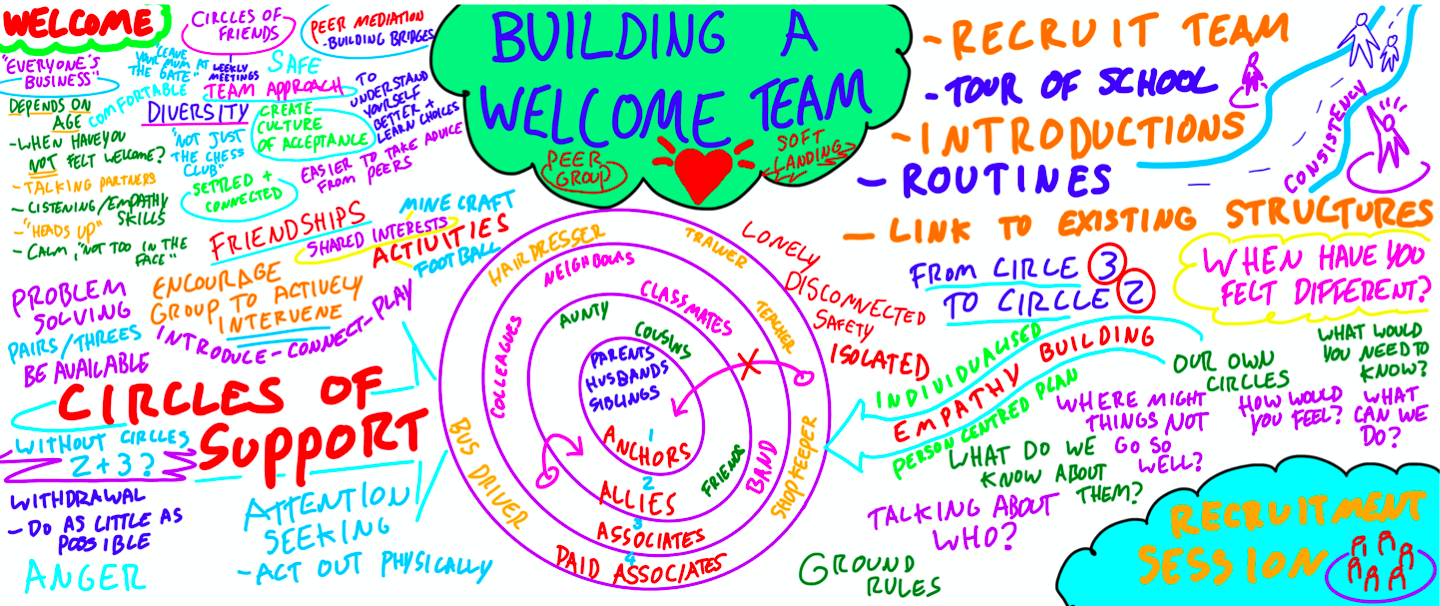 WELCOME
"EVERYONE'S
BUSINESS"
CIRCLES OF
FRIENDS
WEEKLY
MEETINGS
PEER MEDIATION
-BUILDING BRIDGES
"LEAVE
YOUR MUM AT
THE GATE"
SAFE
COMFORTABLE
TEAM APPROACH
DEPENDS ON
AGE
-WHEN HAVE YOU
NOT FELT WELCOME?
- TALKING PARTNERS
- LISTENING/EMPATHY
SKILLS
-"HEADS UP"
- CALM, "NOT TOO IN THE
FACE"
DIVERSITY
"NOT JUST
THE CHESS
CLUB"
CREATE
CULTURE
OF ACCEPTANCE
TO
UNDERSTAND
YOURSELF
BETTER +
LEARN CHOICES
SETTLED +
CONNECTED
EASIER TO TAKE ADVICE
FROM PEERS
FRIENDSHIPS
SHARED INTERESTS
MINECRAFT
ACTIVITIES
FOOTBALL
PROBLEM
SOLVING
PAIRS/THREES
BE AVAILABLE
ENCOURAGE
GROUP TO ACTIVELY
INTERVENE
INTRODUCE-CONNECT-PLAY
CIRCLES OF
SUPPORT
WITHOUT CIRCLES
2+3?
WITHDRAWAL
- DO AS LITTLE AS
POSSIBLE
ANGER
ATTENTION
SEEKING
-ACT OUT PHYSICALLY
BUILDING A
WELCOME TEAM
PEER
GROUP
SOFT
LANDING
HAIRDRESSER
TRAINER
TEACHER
SHOPKEEPER
BUS DRIVER
NEIGHBOURS
CLASSMATES
COLLEAGUES
BAND
AUNTY
COUSINS
FRIENDS
PARENTS
HUSBANDS
SIBLINGS
1
ANCHORS
2
ALLIES
3
ASSOCIATES
4
PAID ASSOCIATES
LONELY
DISCONNECTED
SAFETY
ISOLATED
-RECRUIT TEAM
-TOUR OF SCHOOL
-INTRODUCTIONS
- ROUTINES
- LINK TO EXISTING STRUCTURES
CONSISTENCY
FROM CIRCLE 3
TO CIRCLE 2
WHEN HAVE YOU
FELT DIFFERENT?
INDIVIDUALISED
EMPATHY BUILDING
PERSON CENTRED PLAN
OUR OWN
CIRCLES
WHAT WOULD
YOU NEED TO
KNOW?
WHERE MIGHT
THINGS NOT
GO SO
WELL?
HOW WOULD
YOU FEEL?
WHAT
CAN WE
DO?
WHAT DO WE
KNOW ABOUT
THEM?
TALKING ABOUT
WHO?
GROUND
RULES
RECRUITMENT
SESSION